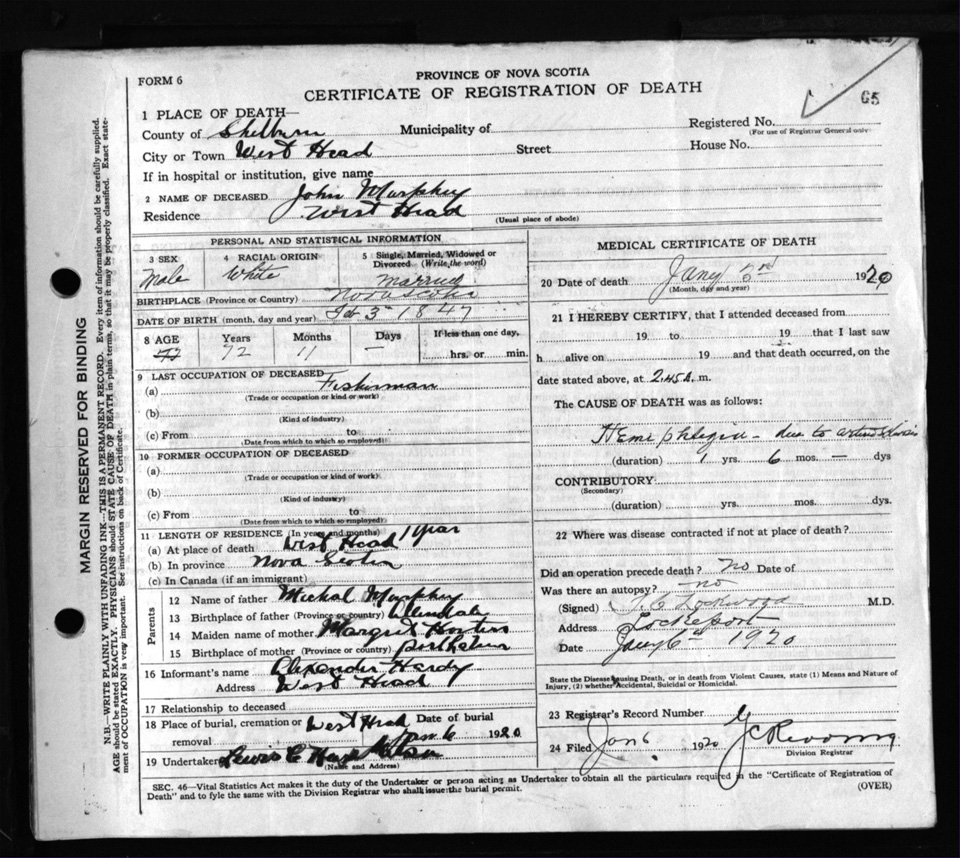 FORM 6
PROVINCE OF NOVA SCOTIA
CERTIFICATE OF REGISTRATION OF DEATH
65
1 PLACE OF DEATH—
Registered No.
(For use of Registrar General only)
County of Shelburn Municipality of
City or Town West Head Street House No.
If in hospital or institution, give name
2 NAME OF DECEASED John Murphy
Residence West Head (Usual place of abode)
PERSONAL AND STATISTICAL INFORMATION
3 SEX Male
4 RACIAL ORIGIN White
5 Single, Married, Widowed or Divorced (Write the word) married
BIRTHPLACE (Province or Country) Nova Scotia
DATE OF BIRTH (month, day and year) Feb 3 1847
8 AGE Years 72 Months 11 Days — If less than one day, hrs. or min.
9 LAST OCCUPATION OF DECEASED
(a) Fisherman
(Trade or occupation or kind or work)
(b)
(Kind of industry)
(c) From to
(Date from which to which so employed)
10 FORMER OCCUPATION OF DECEASED
(a)
(Trade or occupation or kind of work)
(b)
(Kind of industry)
(c) From to
(Date from which to which so employed)
11 LENGTH OF RESIDENCE (In years and months)
(a) At place of death West Head 1 year
(b) In province Nova Scotia
(c) In Canada (if an immigrant)
Parents
12 Name of father Michal Murphy
13 Birthplace of father (Province or country)
14 Maiden name of mother Margret
15 Birthplace of mother (Province or country)
16 Informant's name Alexander Hardy
Address West Head
17 Relationship to deceased
18 Place of burial, cremation or removal West Head Date of burial Jan 6 1920
19 Undertaker Lewis C
(Name and Address)
MEDICAL CERTIFICATE OF DEATH
20 Date of death Jany 3rd 1920
(Month, day and year)
21 I HEREBY CERTIFY, that I attended deceased from
19 to 19 that I last saw
h alive on 19 and that death occurred, on the
date stated above, at 2.45 A. m.
The CAUSE OF DEATH was as follows:
Hemiphlegia — due to
(duration) 1 yrs. 6 mos. — dys
CONTRIBUTORY:
(Secondary)
(duration) yrs. mos. dys.
22 Where was disease contracted if not at place of death?
Did an operation precede death? no Date of
Was there an autopsy? no
(Signed) Lockwood M.D.
Address Lockeport
Date Jany 6th 1920
State the Disease causing Death, or in death from Violent Causes, state (1) Means and Nature of
Injury, (2) whether Accidental, Suicidal or Homicidal.
23 Registrar's Record Number
24 Filed Jan 6 1920
Division Registrar
SEC. 46—Vital Statistics Act makes it the duty of the Undertaker or person acting as Undertaker to obtain all the particulars required in the "Certificate of Registration of
Death" and to fyle the same with the Division Registrar who shall issue the burial permit. (OVER)
MARGIN RESERVED FOR BINDING
N.B.—WRITE PLAINLY WITH UNFADING INK—THIS IS A PERMANENT RECORD. Every item of information should be carefully supplied.
AGE should be stated EXACTLY. PHYSICIANS should STATE CAUSE OF DEATH in plain terms, so that it may be properly classified. Exact state-
ment of OCCUPATION is very important. See instructions on back of Certificate.